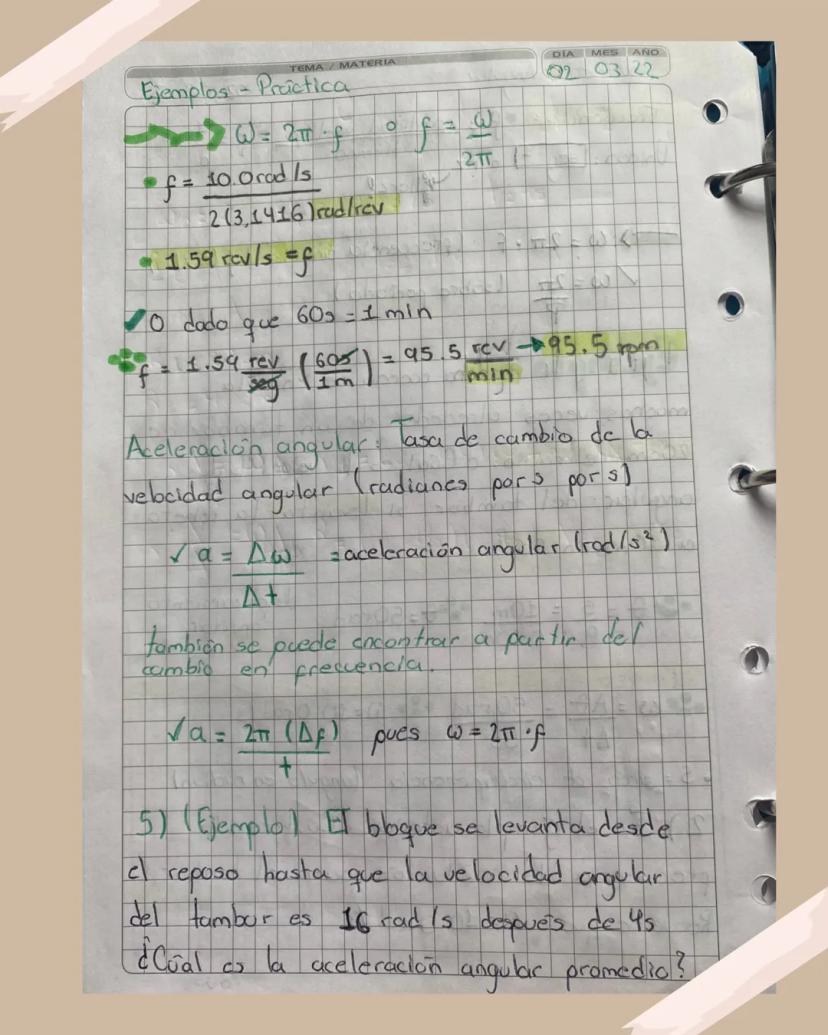 TEMA / MATERIA
DIA MES AÑO
Ejemplos - Práctica
02 03 22
ω = 2π · f o f = ω / 2π
• f = 10.0 rad/s / 2(3,1416) rad/rev
• 1.59 rev/s = f
✓ O dado que 60s = 1 min
f = 1.59 rev/seg (60s/1m) = 95.5 rev/min → 95.5 rpm
Aceleración angular: Tasa de cambio de la
velocidad angular (radianes por s por s)
✓ a = Δω / Δt = aceleración angular (rad/s²)
también se puede encontrar a partir del
cambio en frecuencia.
✓ a = 2π (Δf) / t pues ω = 2π · f
5) (Ejemplo) El bloque se levanta desde
el reposo hasta que la velocidad angular
del tambor es 16 rad/s después de 4s
¿Cúal es la aceleración angular promedio?